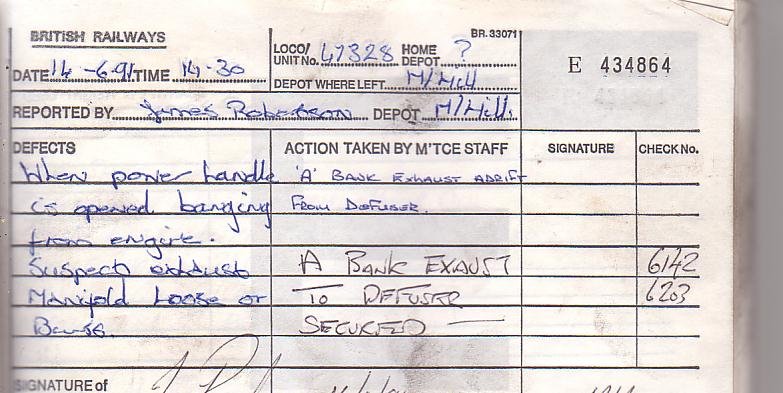 BRITISH RAILWAYS
BR. 33071
LOCO/ UNIT No. 47328 HOME DEPOT ?
E 434864
DATE 14-6-91 TIME 14-30
DEPOT WHERE LEFT M/Hill
REPORTED BY James Robertson DEPOT M/Hill
DEFECTS ACTION TAKEN BY M'TCE STAFF SIGNATURE CHECK No.
When power handle 'A' BANK EXHAUST ADRIFT
is opened banging FROM DEFUSER.
from engine.
Suspect exhaust A BANK EXAUST 6142
Manifold Loose or TO DEFUSER 6203
SECURED
SIGNATURE of